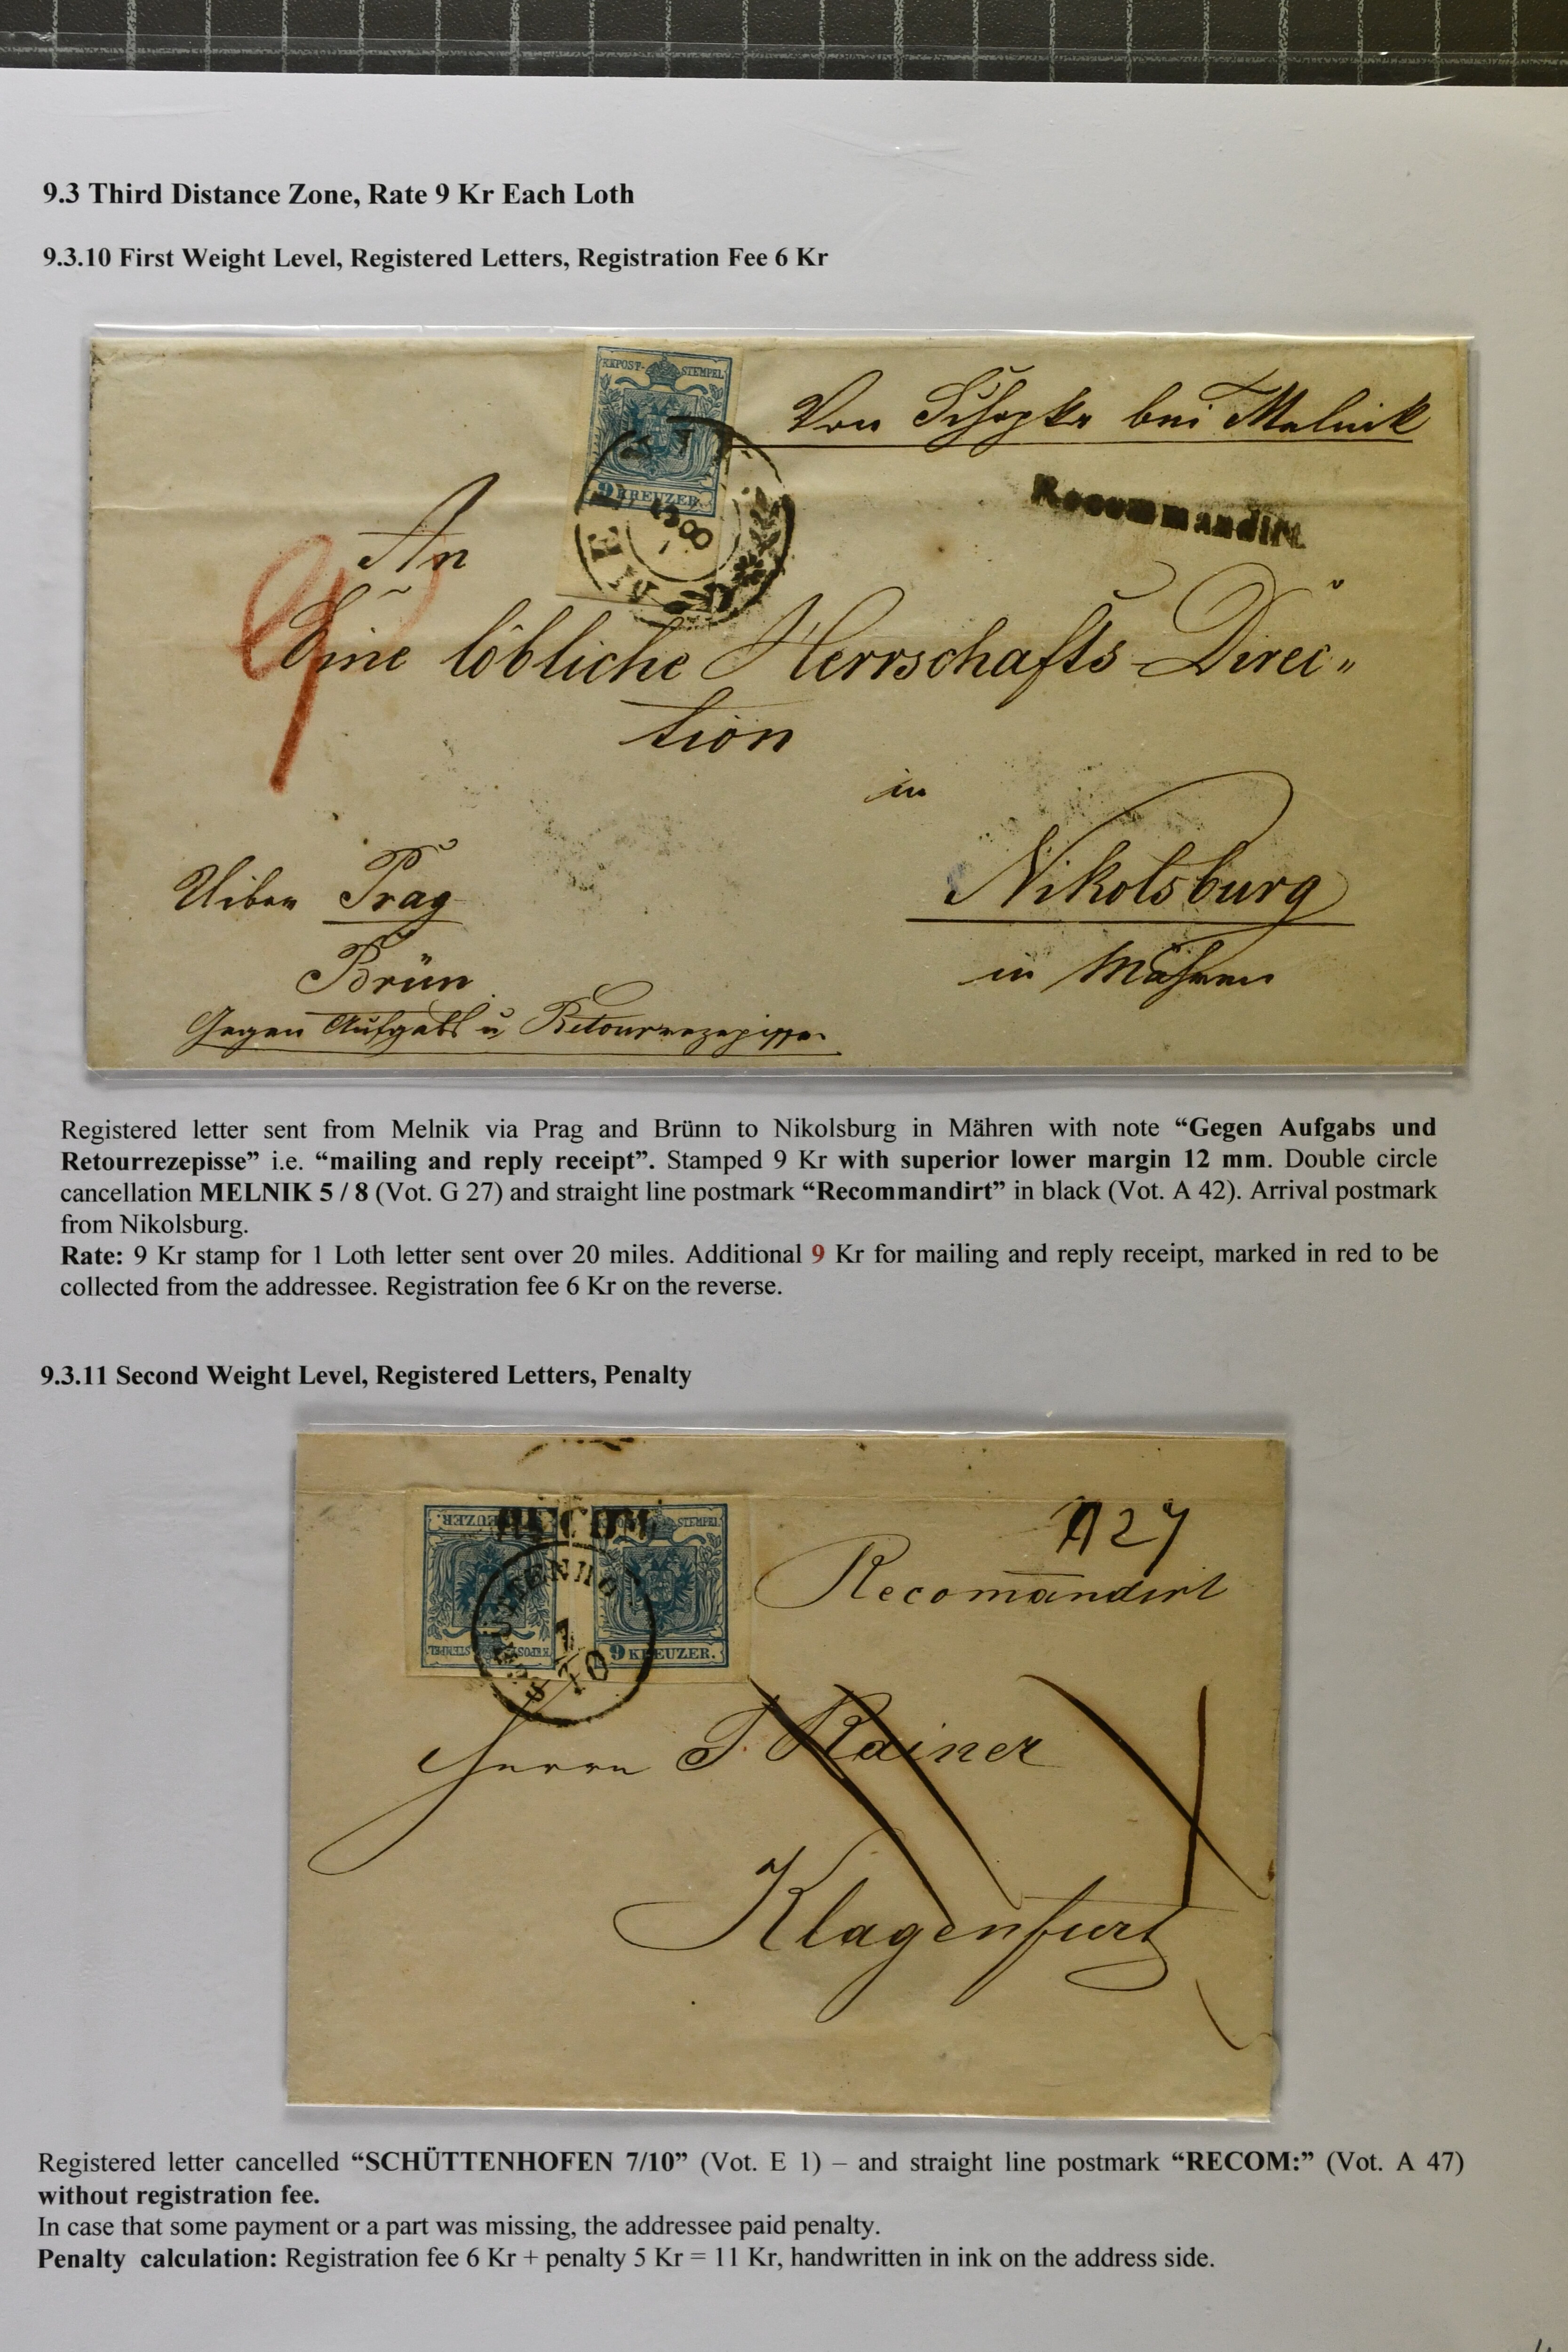 9.3 Third Distance Zone, Rate 9 Kr Each Loth
9.3.10 First Weight Level, Registered Letters, Registration Fee 6 Kr
KKPOST-STEMPEL
9 KREUZER.
Von Schopka bei Melnik
Recommandirt
An
9
Eine löbliche Herrschafts-Direc„
tion
in
Nikolsburg
in Mähren
Uiber Prag
Brün
Gegen Aufgabs u Retourrezepisse
Registered letter sent from Melnik via Prag and Brünn to Nikolsburg in Mähren with note “Gegen Aufgabs und
Retourrezepisse” i.e. “mailing and reply receipt”. Stamped 9 Kr with superior lower margin 12 mm. Double circle
cancellation MELNIK 5 / 8 (Vot. G 27) and straight line postmark “Recommandirt” in black (Vot. A 42). Arrival postmark
from Nikolsburg.
Rate: 9 Kr stamp for 1 Loth letter sent over 20 miles. Additional 9 Kr for mailing and reply receipt, marked in red to be
collected from the addressee. Registration fee 6 Kr on the reverse.
9.3.11 Second Weight Level, Registered Letters, Penalty
RECOM:
STEMPEL
9 KREUZER.
SCHÜTTENHO
7
10
27
Recomandirt
Herrn J. Rainer
Klagenfurt
Registered letter cancelled “SCHÜTTENHOFEN 7/10” (Vot. E 1) – and straight line postmark “RECOM:” (Vot. A 47)
without registration fee.
In case that some payment or a part was missing, the addressee paid penalty.
Penalty calculation: Registration fee 6 Kr + penalty 5 Kr = 11 Kr, handwritten in ink on the address side.